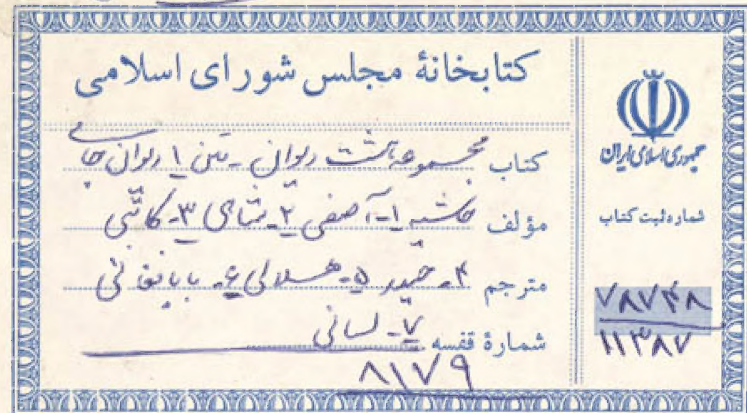 کتابخانهٔ مجلس شورای اسلامی
کتاب مجموعه هشت دیوان - متن ۱ دیوان جامی
مؤلف حاشیه ۱- آصفی ۲- شاهی ۳- کاتبی
مترجم ۴- حیدر ۵- هلالی ۶- بابافغانی
شمارهٔ قفسه ۷- لسانی
۸۱۷۹
جمهوری اسلامی ایران
شماره ثبت کتاب
۷۸۷۴۸
۱۱۳۸۷